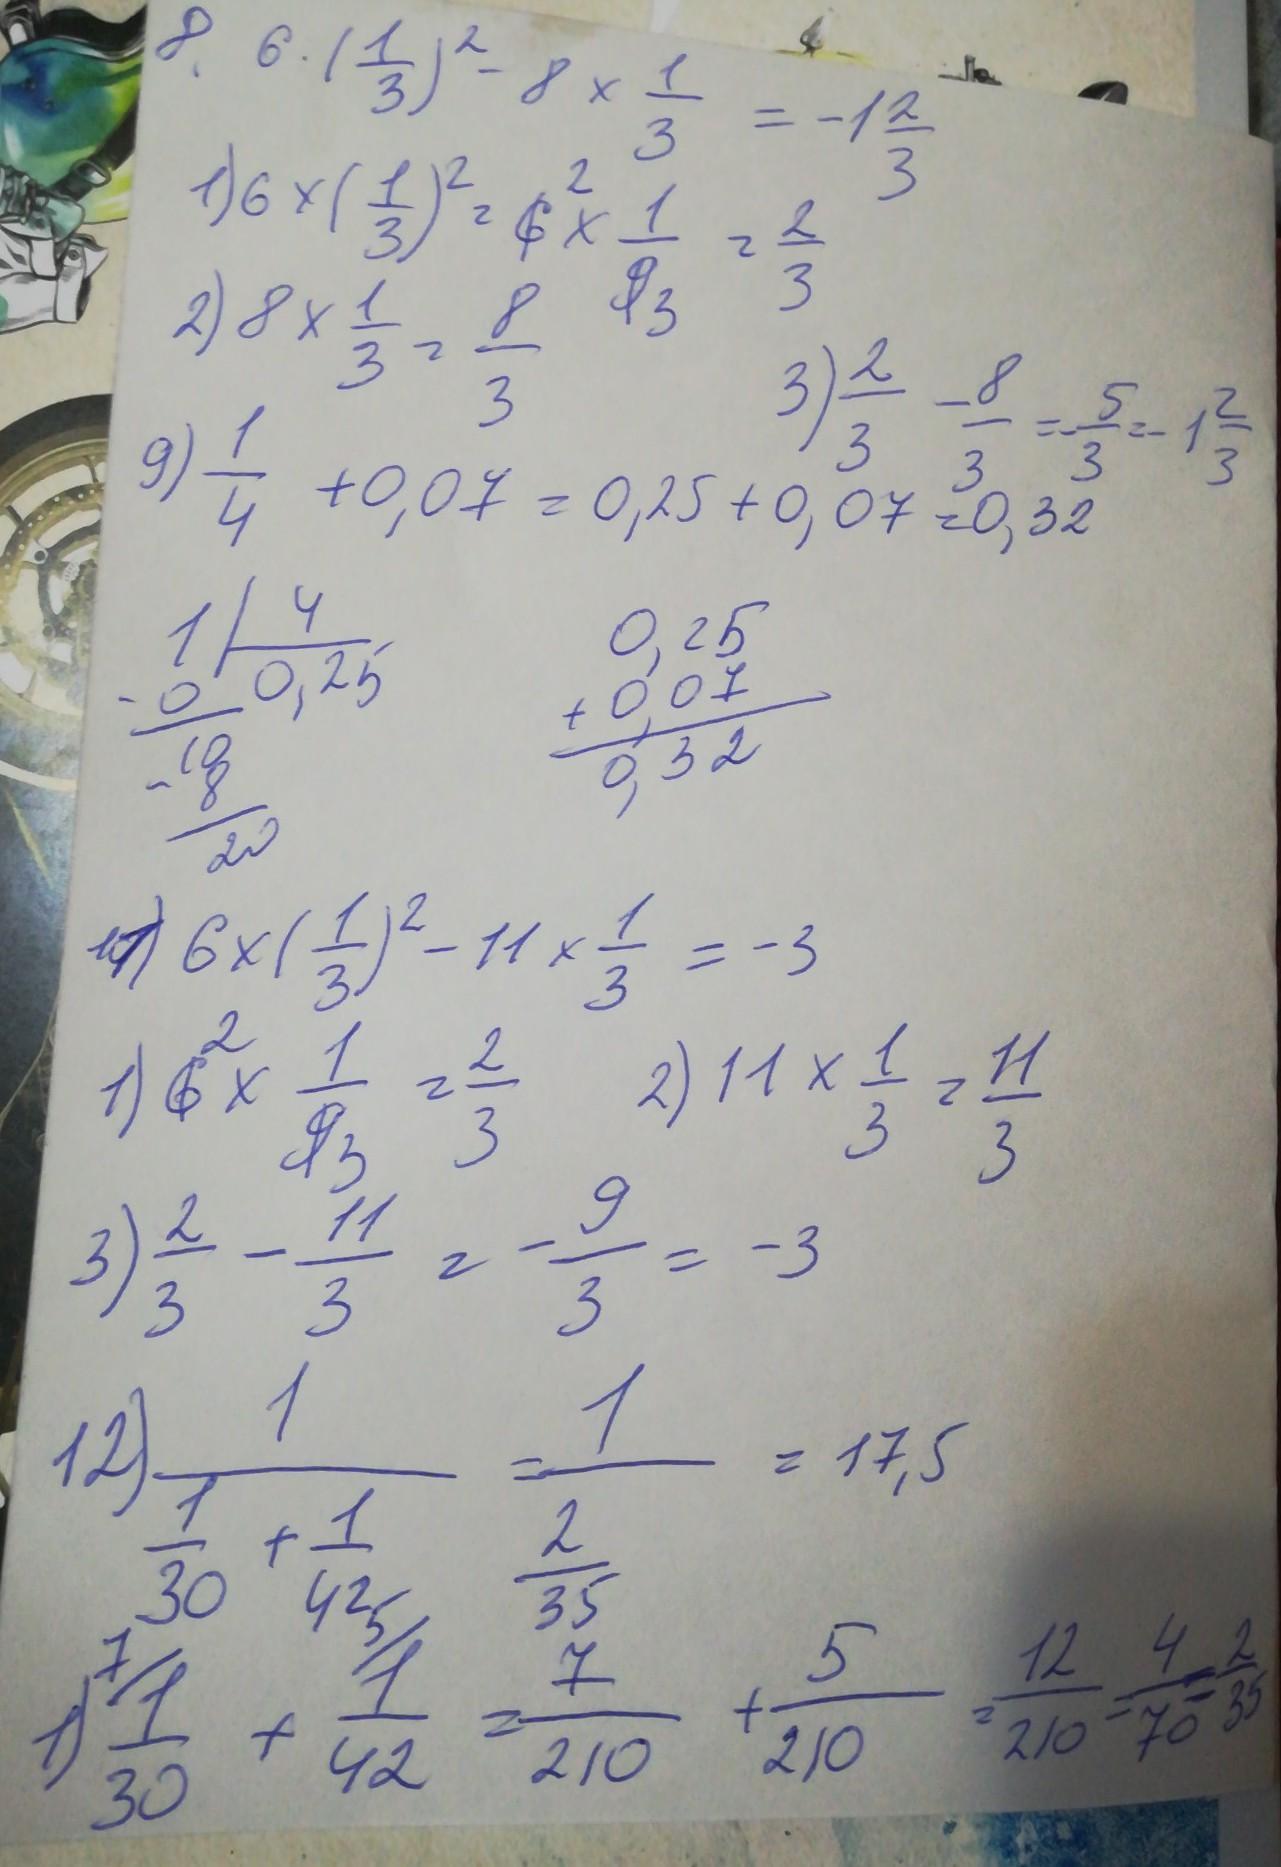 8. 6·(1/3)² - 8 × 1/3 = -1 2/3
1) 6 × (1/3)² = 6² × 1/9 3 = 2/3
2) 8 × 1/3 = 8/3
3) 2/3 - 8/3 = -5/3 = -1 2/3
9) 1/4 + 0,07 = 0,25 + 0,07 = 0,32
1 | 4
-0 0,25
10
-8
20
0,25
+0,07
0,32
11) 6 × (1/3)² - 11 × 1/3 = -3
1) 6² × 1/9 3 = 2/3
2) 11 × 1/3 = 11/3
3) 2/3 - 11/3 = -9/3 = -3
12) 1/(1/30 + 1/42) = 1/(2/35) = 17,5
1) 7/ 1/30 + 5/ 1/42 = 7/210 + 5/210 = 12/210 = 4/70 = 2/35